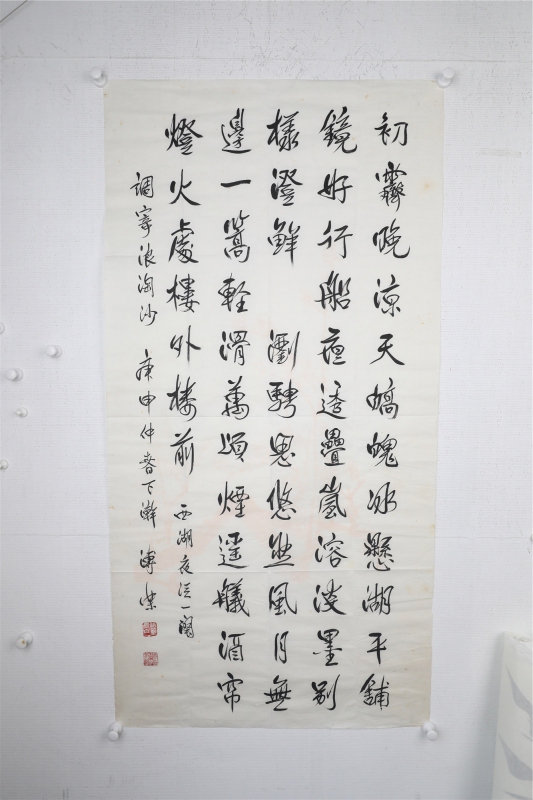 初霽晚涼天嬌魄冰懸湖平鋪
鏡好行船透疊嵐溶淡墨別
樣澄鮮 瀏騁思悠然風月無
邊一篙輕滑萬頃煙遥艤酒帘
燈火處樓外樓前 西湖夜泛一闋
調寄浪淘沙 庚申仲春下澣 溥傑